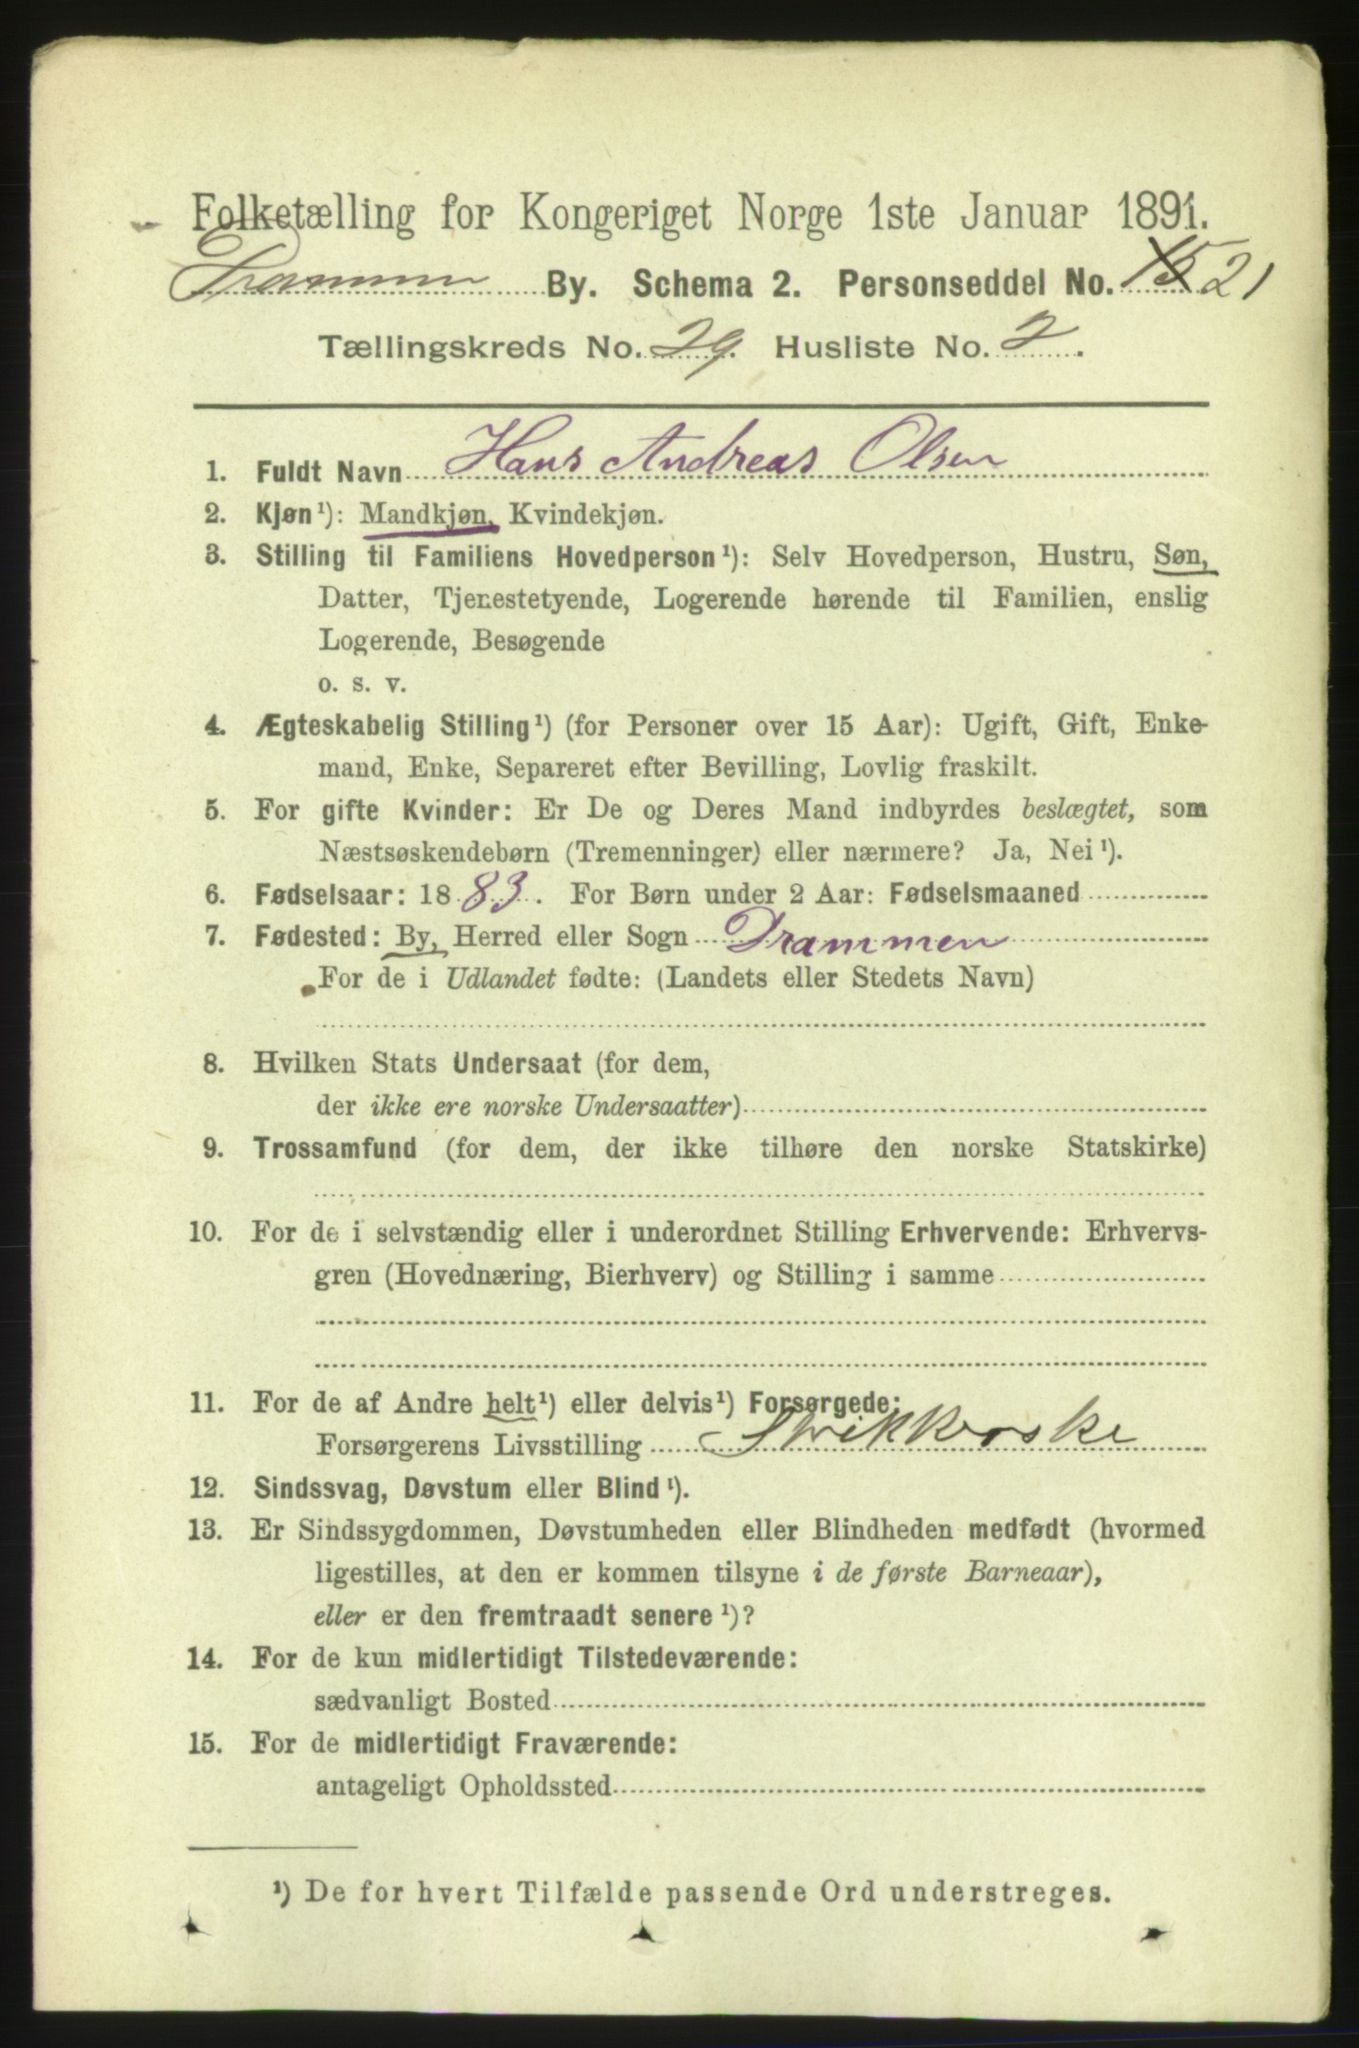 Folketælling for Kongeriget Norge 1ste Januar 1891.
Drammen By. Schema 2. Personseddel No. 15 21
Tællingskreds No. 29. Husliste No. 2.
1. Fuldt Navn Hans Andreas Olsen
2. Kjøn¹): Mandkjøn, Kvindekjøn.
3. Stilling til Familiens Hovedperson¹): Selv Hovedperson, Hustru, Søn,
Datter, Tjenestetyende, Logerende hørende til Familien, enslig
Logerende, Besøgende
o. s. v.
4. Ægteskabelig Stilling¹) (for Personer over 15 Aar): Ugift, Gift, Enke-
mand, Enke, Separeret efter Bevilling, Lovlig fraskilt.
5. For gifte Kvinder: Er De og Deres Mand indbyrdes beslægtet, som
Næstsøskendebørn (Tremenninger) eller nærmere? Ja, Nei¹).
6. Fødselsaar: 1883. For Børn under 2 Aar: Fødselsmaaned
7. Fødested: By, Herred eller Sogn Drammen
For de i Udlandet fødte: (Landets eller Stedets Navn)
8. Hvilken Stats Undersaat (for dem,
der ikke ere norske Undersaatter)
9. Trossamfund (for dem, der ikke tilhøre den norske Statskirke)
10. For de i selvstændig eller i underordnet Stilling Erhvervende: Erhvervs-
gren (Hovednæring, Bierhverv) og Stilling i samme
11. For de af Andre helt¹) eller delvis¹) Forsørgede:
Forsørgerens Livsstilling
12. Sindssvag, Døvstum eller Blind¹).
13. Er Sindssygdommen, Døvstumheden eller Blindheden medfødt (hvormed
ligestilles, at den er kommen tilsyne i de første Barneaar),
eller er den fremtraadt senere¹)?
14. For de kun midlertidigt Tilstedeværende:
sædvanligt Bosted
15. For de midlertidigt Fraværende:
antageligt Opholdssted
¹) De for hvert Tilfælde passende Ord understreges.